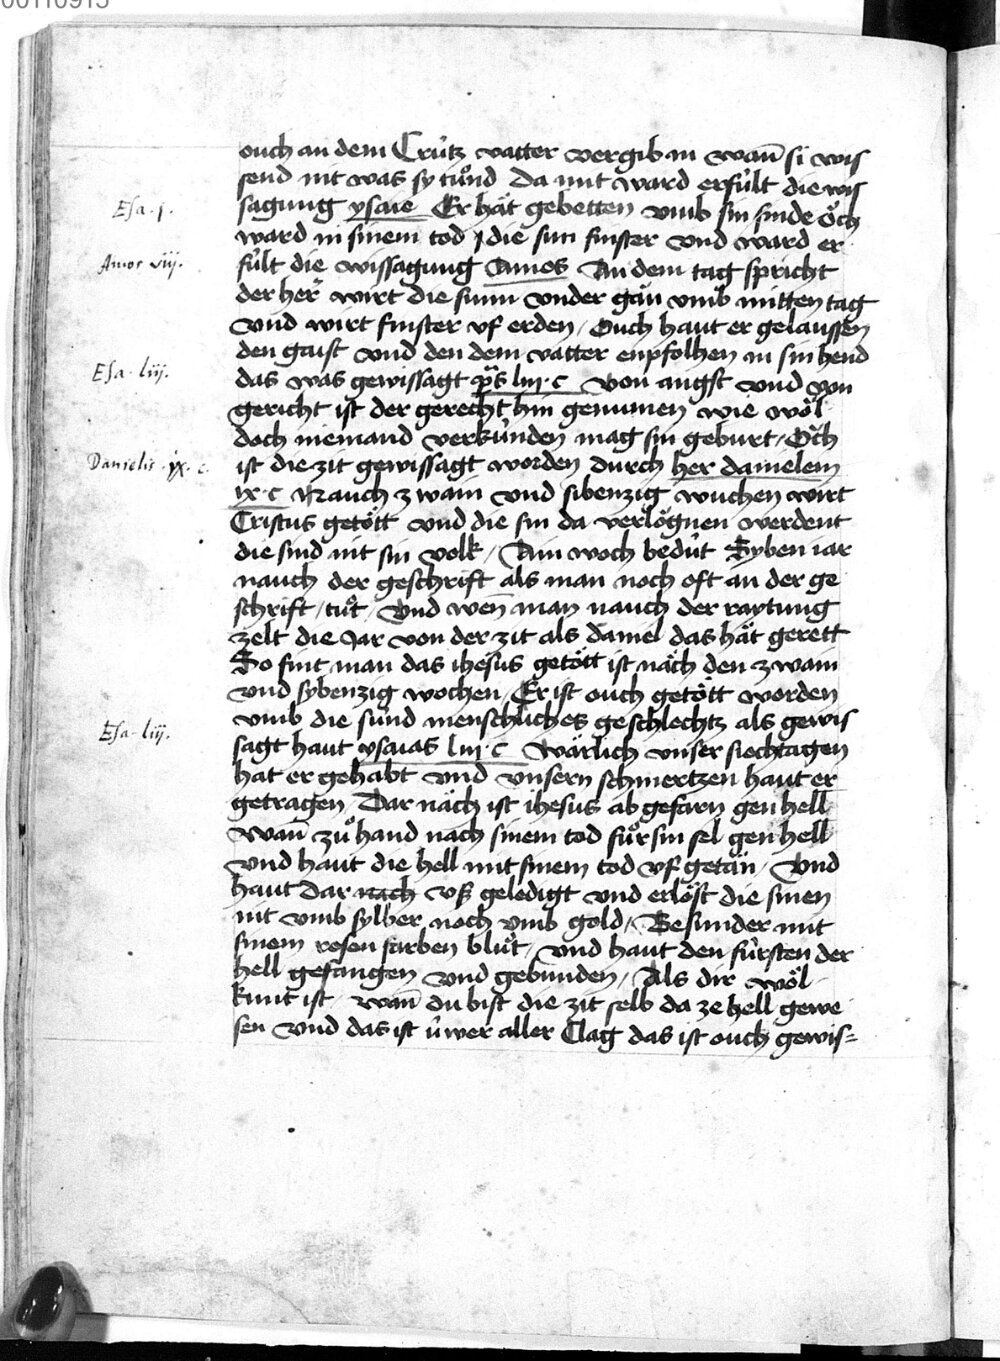 00110915
ouch an dem Crútz vatter vergib in wan̄ si wis
send nit was sy tuͦnd Da mit ward erfúlt die wis
Esa. j.
sagung ysaie Er hät gebetten vmb sin finde Och
ward in sinem tod / die sun finster vnd ward er
Amos viij.
fúlt die wissagung Amos An dem tag spricht
der her wirt die sunn vnder gän vmb mitten tag
vnd wirt finster vf erden / Ouch haut er gelaussen
den gaist vnd den dem vatter enpfolhen in sin hend
Esa. liij.
das was gewissagt liij. c von angst vnd von
gericht ist der gerecht hin genumen wie wöl
doch niemand verkúnden mag sin geburt / Och
Danielis .ix. c.
ist die zit gewissagt worden durch her danielem
ix. c Nauch zwain vnd sibenzig wuchen wirt
Cristus getött vnd die sin da verlögnen werdent
die sind nit sin volk / Ain woch bedút Syben iar
nauch der geschrift als man noch oft an der ge
schrift / tuͦt / Vnd wen̄ man nauch der raytung
zelt die Jar von der zit als daniel das hät gerett
So fint man das ihesus getött ist näch den zwain
vnd sybenzig wochen / Er ist ouch getött worden
vmb die súnd menschliches geschlechtz als gewis
Esa. liij.
sagt haut ysaias liij. c Wärlich vnser siechtagen
hat er gehabt vnd vnsern schmertzen haut er
getragen Dar näch ist ihesus ab gefarn gen hell
Wan̄ zuͦ hand nach sinem tod fuͦr sin sel gen hell
vnd haut die hell mit sinem tod vf getän / Vnd
haut Dar nach vß geledigt vnd erlöst die sinen
nit vmb sylber noch vmb gold / Besunder mit
sinem rosen farben bluͦt / vnd haut den fúrsten der
hell gefangen vnd gebunden / Als dir wöl
kunt ist / wan̄ du bist die zit selb da ze hell gewe
sen vnd das ist úwer aller Clag das ist ouch gewis=